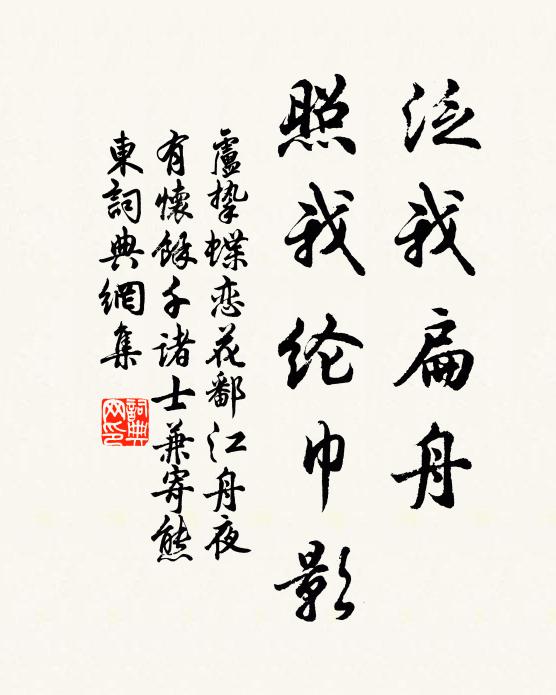 泛我扁舟
照我纶巾影
盧摯蝶恋花鄱江舟夜
有懷餘干諸士兼寄熊
東詞典網集
詞典网印